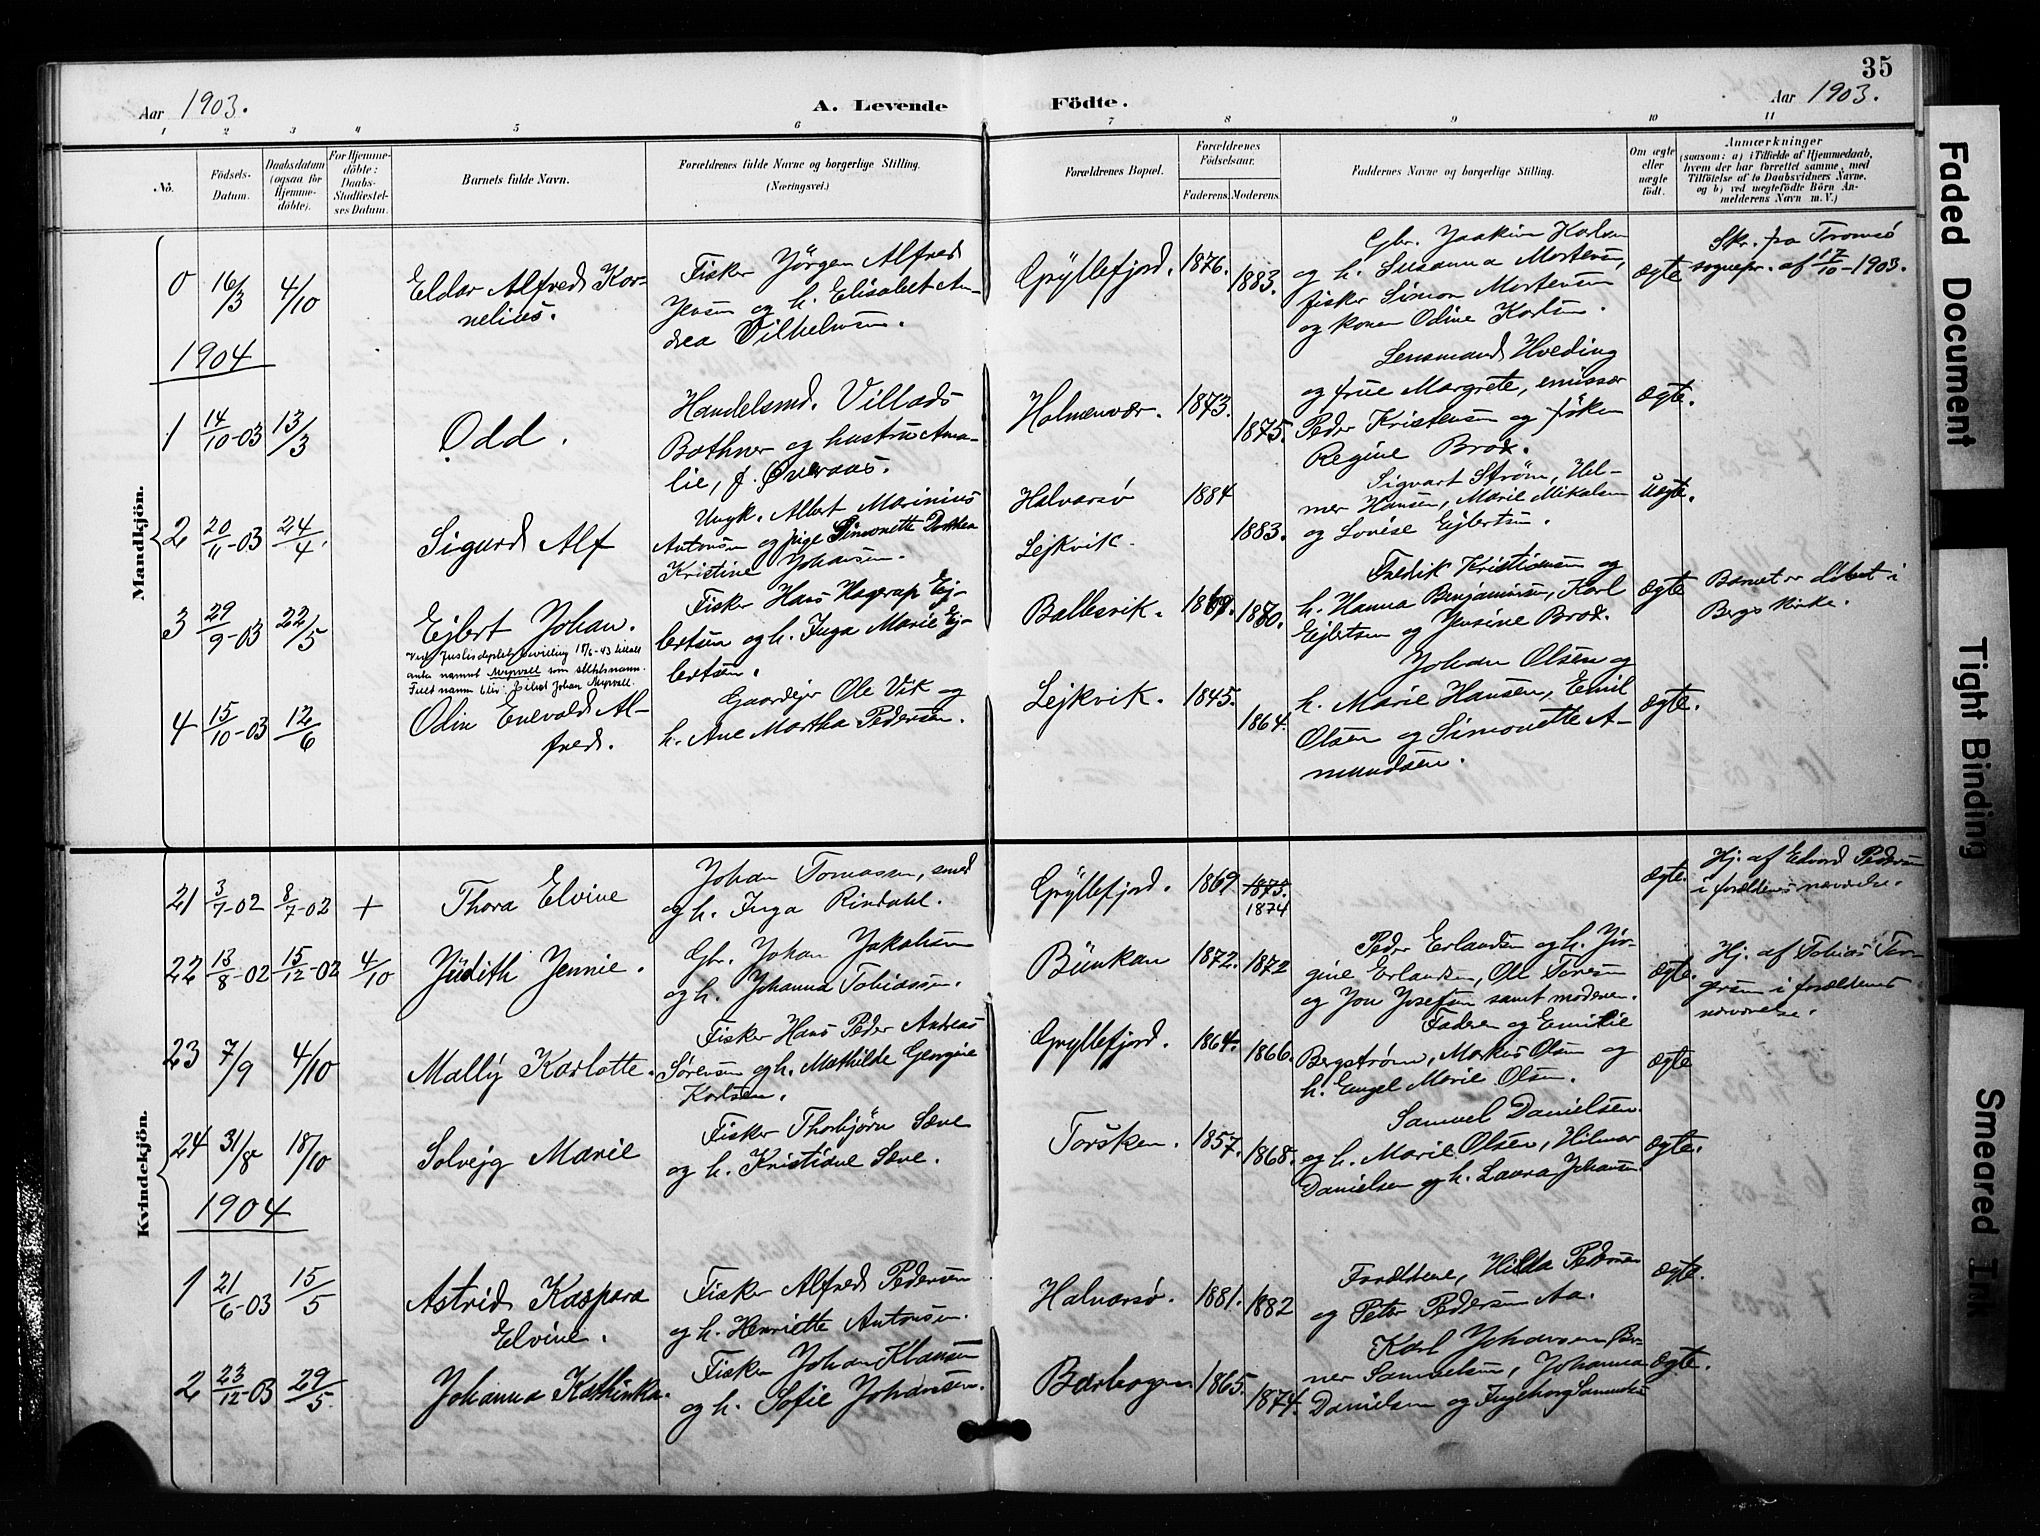 35
Aar 1903.
A. Levende Födte.
Aar 1903.
1 2 3 4 5 6 7 8 9 10 11
No.
Födsels-Datum.
Daabsdatum (ogsaa for Hjemme-döbte).
For Hjemme-döbte: Daabs-Stadfæstel-ses Datum.
Barnets fulde Navn.
Forældrenes fulde Navne og borgerlige Stilling. (Næringsvei.)
Forældrenes Bopæl.
Forældrenes Födselsaar.
Faderens. Moderens.
Faddernes Navne og borgerlige Stilling.
Om ægte eller uægte födt.
Anmærkninger
(saasom: a) i Tilfælde af Hjemmedaab,
hvem der har forrettet samme, med
Tilföielse af to Daabsvidners Navne,
og b) ved uægtefödte Börn An-
melderens Navn m. V.)
Mandkjön.
0 16/3 4/10 Eldar Alfred Kor-
nelius.
Fisker Jörgen Alfred
Jensen og h. Elisabet An-
drea Vilhelmsen.
Gryllefjord. 1876. 1883.
Gbr. Joakim Karlsen
og h. Susanna Mortensen,
fisker Simon Mortensen
og konen Odine Karlsen.
ægte
Skr. fra Tromsö
sognepr. af 17/10-1903.
1904
1 14/10-03 13/3 Odd.
Handelsmd. Villads
Bothner og hustru Ama-
lie, f. Överaas.
Holmenvær. 1873. 1875.
Lensmand Hveding
og frue Margrete, emissær
Peder Kristensen og fröken
Regine Brox.
ægte.
2 20/11-03 24/4. Sigurd Alf
Ungk. Albert Mainius
Antonsen og pige Simonette Dorthea
Kristine Johansen.
Halvarsö 1884
Lejkvik. 1883.
Sigvart Ström, Hel-
mer Hansen, Marie Mikalsen
og Lovise Ejlertsen.
uægte.
3 29/9-03 22/5 Ejlert Johan.
Ved Justisdeptets bevilling 18/6-43 tillatt
anta navnet Myrvoll som slektsnavn.
Fullt navn blir: Eilert Johan Myrvoll.
Fisker Hans Hagerup Ej-
lertsen og h. Inga Marie Ej-
lertsen.
Ballesvik. 1869. 1880.
Fredrik Kristiansen og
h. Hanna Benjaminsen, Karl
Ejlertsen og Jensine Brox.
ægte
Barnet er döbt i
Bergs kirke.
4 15/10-03 12/6 Odin Enevald Al-
fred.
Gaardejer Ole Vik og
h. Ane Martha Pedersen.
Lejkvik. 1845. 1864.
Johan Olsen og
h. Marie Hansen, Emil
Olsen og Simonette A-
mundsen.
ægte.
Kvindekjön.
21 3/7-02 8/7-02 + Thora Elvine
Johan Tomassen, smed
og h. Inga Rindahl.
Gryllefjord. 1869. 1873.
1874
ægte.
Hj. af Edvard Pedersen
i forældrenes nærværelse.
22 13/8-02 15/12-02 4/10 Judith Jennie.
Gbr. Johan Jakobsen
og h. Johanna Tobiassen.
Bunkan 1872. 1872
Peder Erlandsen og h. Jör-
gine Erlandsen, Ole Toresen
og Jon Josefsen samt moderen.
ægte.
Hj. af Tobias Tor-
gersen i forældrenes
nærværelse.
23 7/9 4/10 Mally Karlotte.
Fisker Hans Peder Andreas
Sörensen og h. Mathilde Georgine
Karlsen.
Gryllefjord. 1864. 1866.
Faderen og Emilie
Bergström, Markus Olsen og
h. Engel Marie Olsen.
ægte
24 31/8 18/10 Solvejg Marie
Fisker Thorbjörn Sæve
og h. Kristiane Sæve.
Torsken. 1857. 1868.
Samuel Danielsen
og h. Marie Olsen, Hilmar
Danielsen og h. Laura Johansen
ægte.
1904
1 21/6-03 15/5 Astrid Kaspara
Elvine.
Fisker Alfred Pedersen
og h. Henriette Antonsen.
Halvarsö. 1881. 1882
Forældrene, Hilda Pedersen
og Peter Pedersen Aa.
ægte.
2 23/12-03 29/5. Johanna Kathinka.
Fisker Johan Klausen
og h. Sofie Johansen.
Barbogen 1865. 1874.
Karl Johansen, Ber-
ner Samuelsen, Johanna
Danielsen og Ingeborg Samuelsen
ægte.
Faded Document
Tight Binding
Smeared Ink